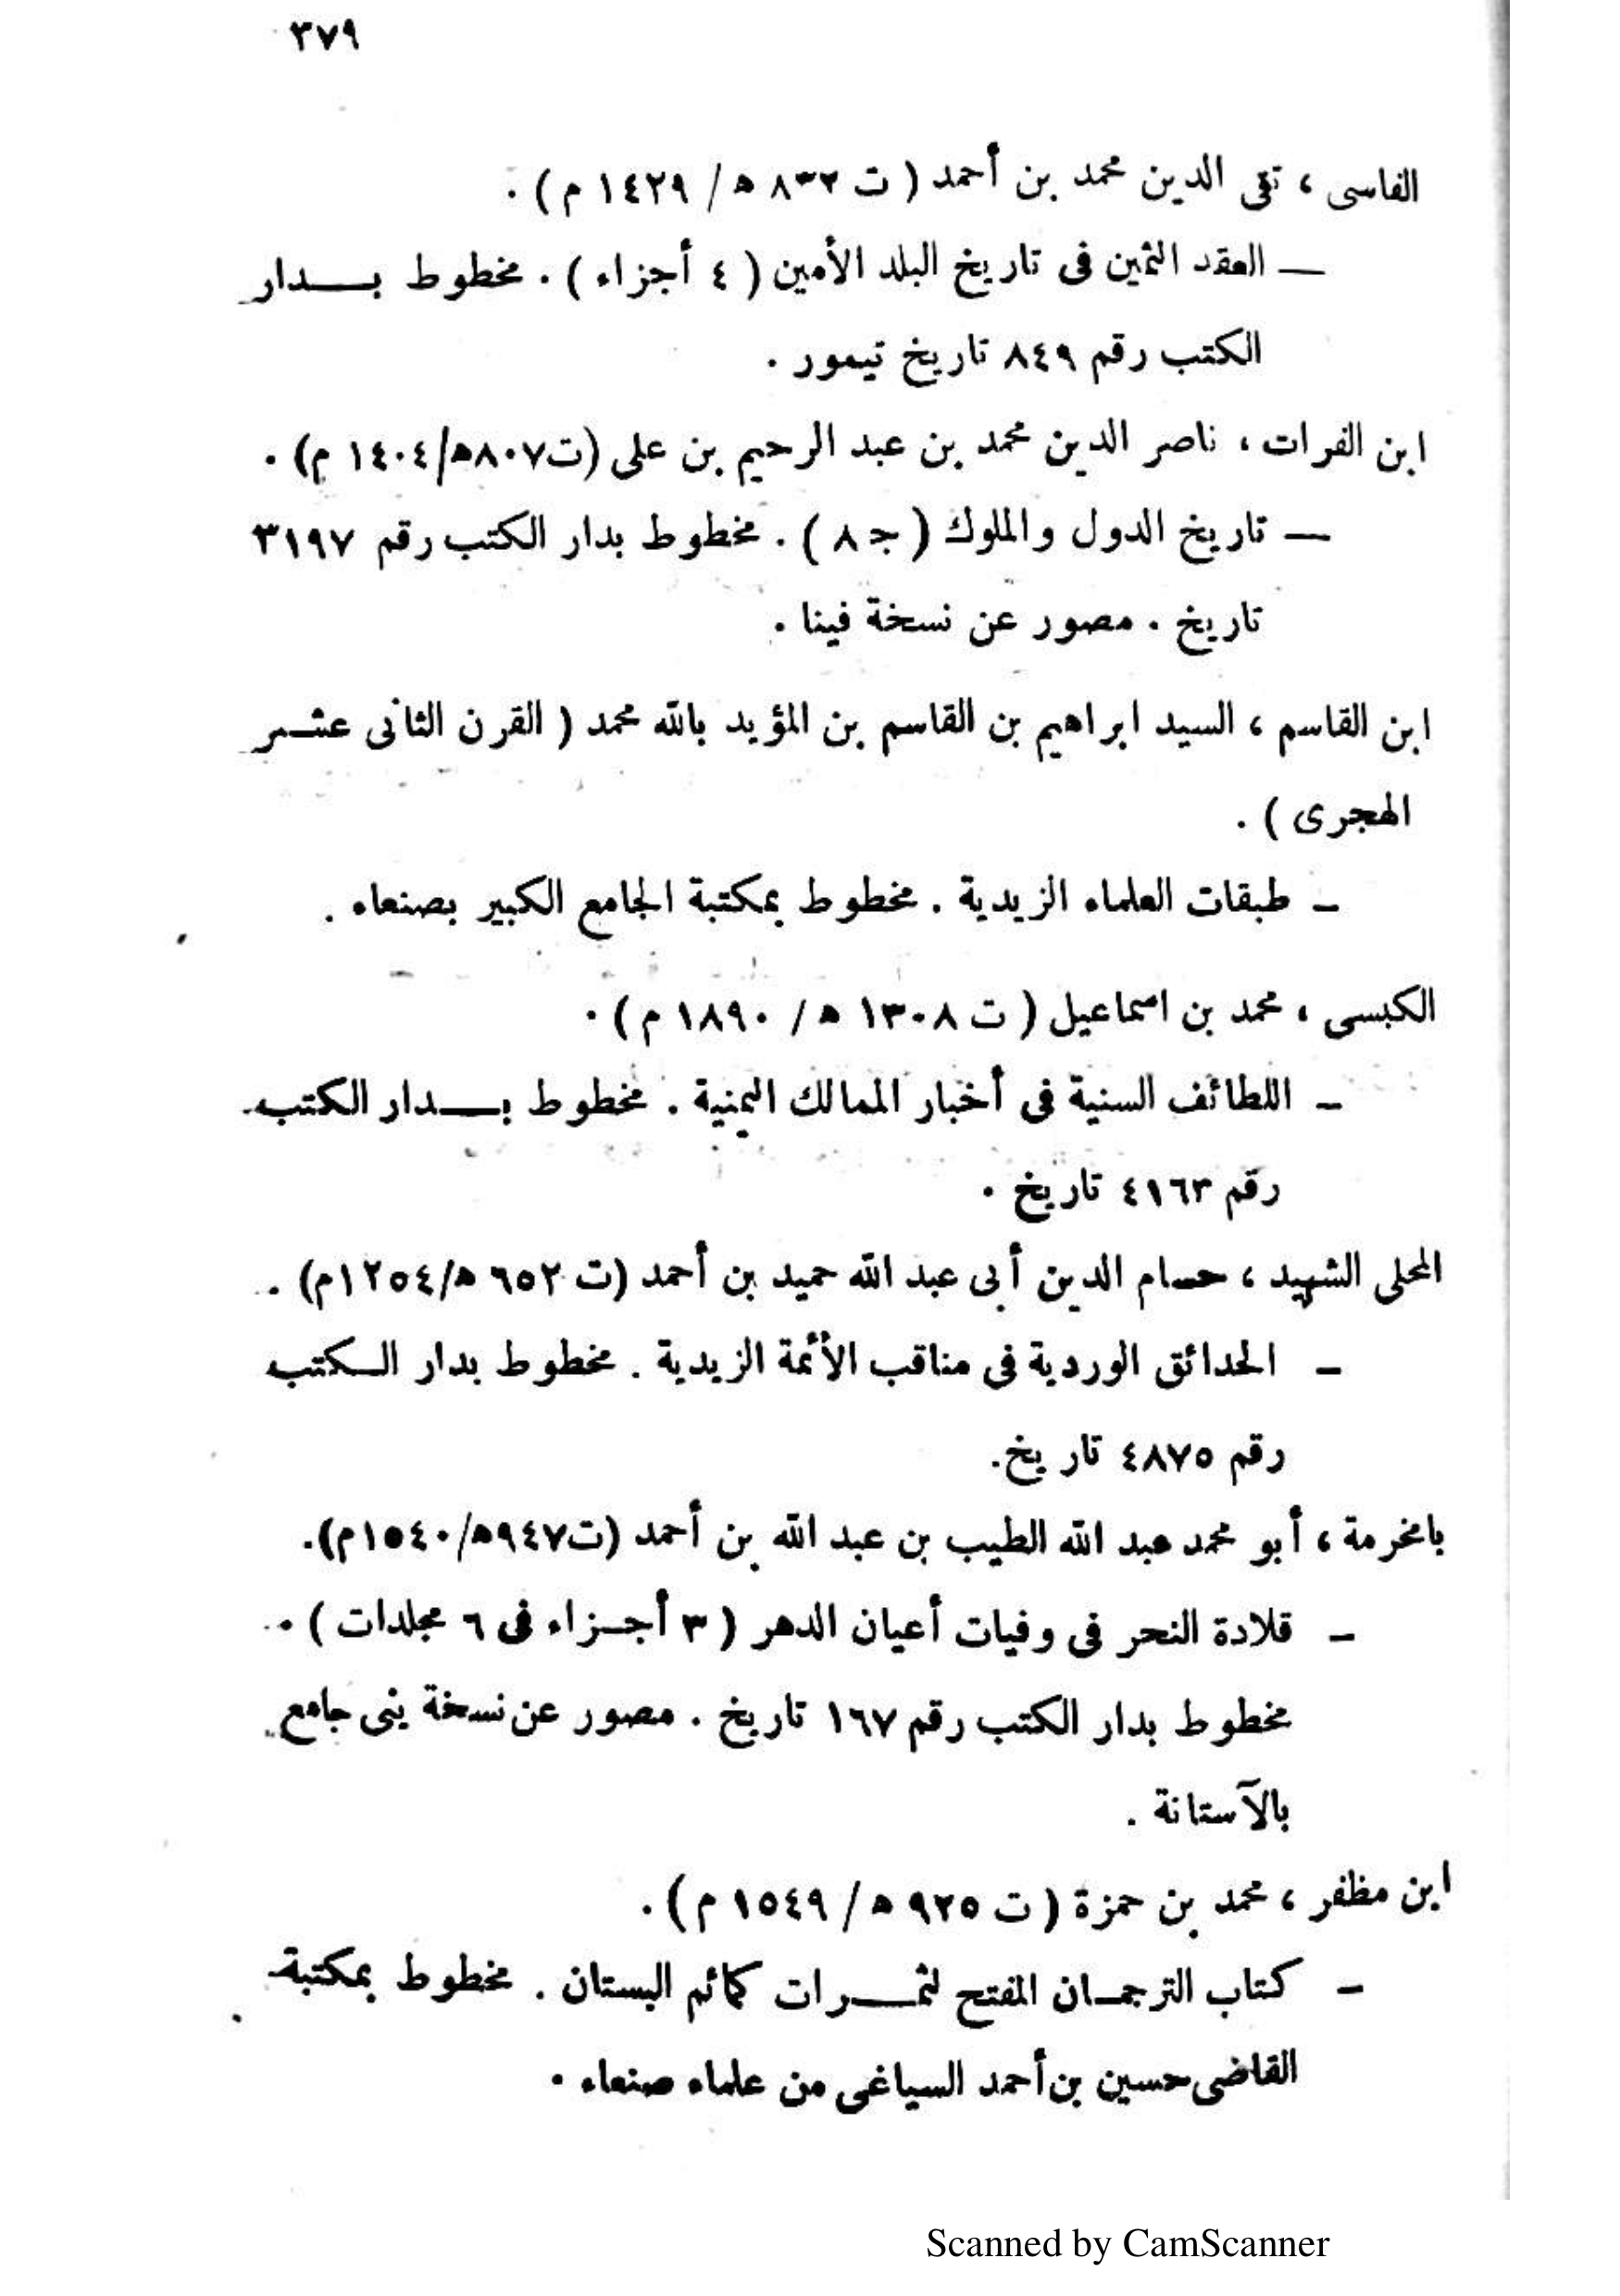 ٣٧٩
الفاسى ، تقى الدين محمد بن أحمد ( ت ٨٣٢ هـ / ١٤٢٩ م ) .
— العقد الثمين فى تاريخ البلد الأمين ( ٤ أجزاء ) . مخطوط بـــدار
الكتب رقم ٨٤٩ تاريخ تيمور .
ابن الفرات ، ناصر الدين محمد بن عبد الرحيم بن على (ت٨٠٧هـ/١٤٠٤ م) .
— تاريخ الدول والملوك ( جـ ٨ ) . مخطوط بدار الكتب رقم ٣١٩٧
تاريخ . مصور عن نسخة فينا .
ابن القاسم ، السيد ابراهيم بن القاسم بن المؤيد بالله محمد ( القرن الثانى عشـر
الهجرى ) .
– طبقات العلماء الزيدية . مخطوط بمكتبة الجامع الكبير بصنعاء .
الكبسى ، محمد بن اسماعيل ( ت ١٣٠٨ هـ / ١٨٩٠ م ) .
– اللطائف السنية فى أخبار الممالك اليمنية . مخطوط بـــدار الكتب
رقم ٤١٦٣ تاريخ .
المحلى الشهيد ، حسام الدين أبى عبد الله حميد بن أحمد (ت ٦٥٢ هـ/١٢٥٤م) .
– الحدائق الوردية فى مناقب الأئمة الزيدية . مخطوط بدار الـكتب
رقم ٤٨٧٥ تاريخ.
بامخرمة ، أبو محمد عبد الله الطيب بن عبد الله بن أحمد (ت٩٤٧هـ/١٥٤٠م).
– قلادة النحر فى وفيات أعيان الدهر ( ٣ أجـزاء فى ٦ مجلدات ) .
مخطوط بدار الكتب رقم ١٦٧ تاريخ . مصور عن نسخة ينى جامع
بالآستانة .
ابن مظفر ، محمد بن حمزة ( ت ٩٢٥ هـ / ١٥٤٩ م ) .
– كتاب الترجمـان المفتح لثمـــرات كمائم البستان . مخطوط بمكتبة
القاضى حسين بن أحمد السياغى من علماء صنعاء .
Scanned by CamScanner